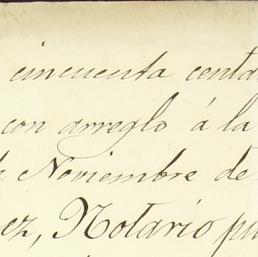 cincuenta centa
con arreglo á la
e Noviembre de
ez, Notario pu